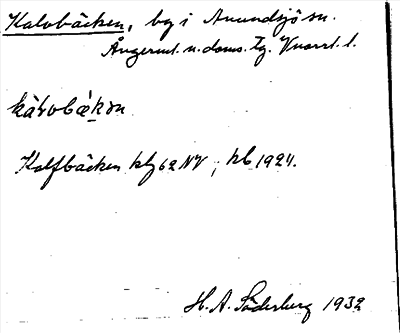 Kalvbäcken, by i Anundsjö sn.
Ångerml. n. doms. tg. Vnorrl. l.
Kalfbäcken kbg 62 NV; kb 1924.
H. A. Söderberg 1932